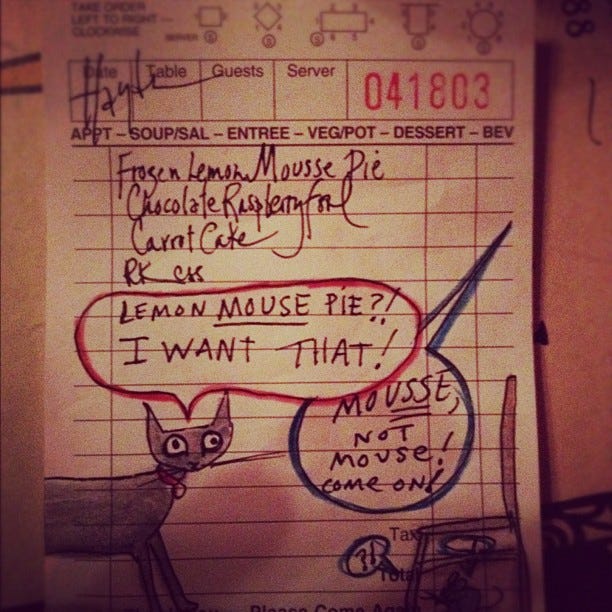 TAKE ORDER
LEFT TO RIGHT -
CLOCKWISE
SERVER
Date Table Guests Server
041803
APPT – SOUP/SAL – ENTREE – VEG/POT – DESSERT – BEV
Frozen Lemon Mousse Pie
Chocolate Raspberry
Carrot Cake
RK
LEMON MOUSE PIE?!
I WANT THAT!
MOUSSE,
NOT
MOUSE!
COME ON!
Tax
?!
Total
Please Come Again